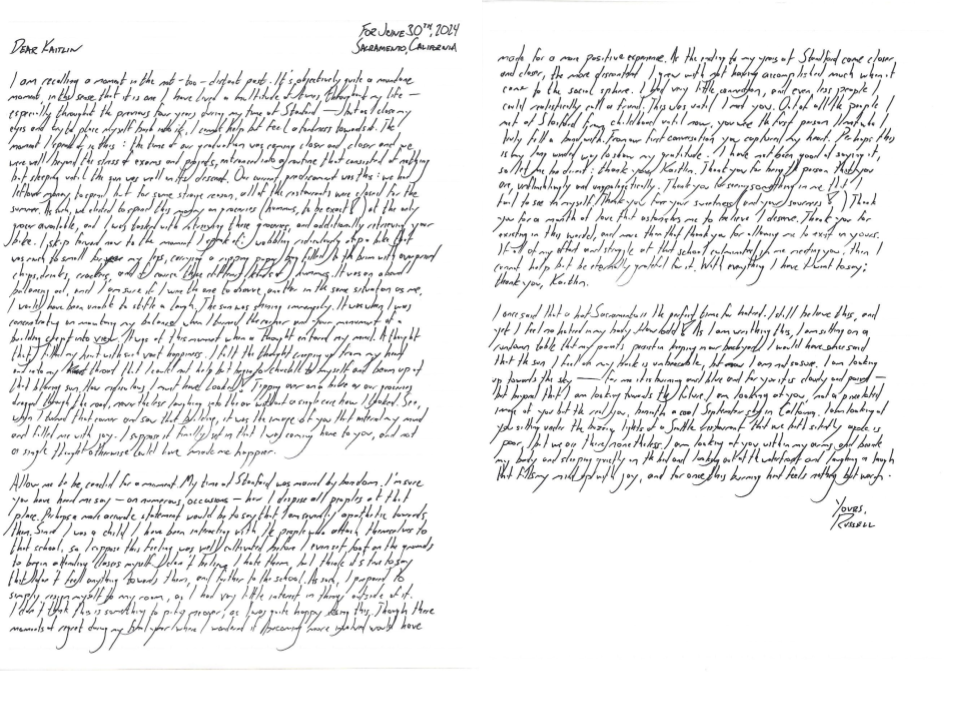 For June 30th, 2024
Sacramento, California
Dear Kaitlin
I am recalling a moment in the not-too-distant past. It's objectively quite a mundane
moment, in the sense that it is one I have lived a multitude of times throughout my life —
especially throughout the previous four years during my time at Stanford — but as I close my
eyes and try to place myself back into it, I cannot help but feel a fondness towards it. The
moment I speak of is this: the time of our graduation was coming closer and closer and we
were well beyond the stress of exams and projects, entranced into a routine that consisted of nothing
but sleeping until the sun was well into descent. Our current predicament was this: we had
leftover money to spend, but for some strange reason, all of the restaurants were closed for the
summer. As such, we decided to spend this money on groceries (hummus, to be exact) at the only
place available, and I was tasked with retrieving these groceries, and additionally retrieving your
bike. I skip forward now to the moment I speak of: wobbling ridiculously atop a bike that
was much too small for my legs, carrying a ripping paper bag filled to the brim with overpriced
chips, drinks, crackers, and of course hummus. It was on about
and I am sure if I were the one to observe another in the same situation as me,
I would have been unable to stifle a laugh. The sun was shining immensely. It was when I was
concentrating on maintaining my balance when I turned the corner and your monument of a
building crept into view. It was at this moment when a thought entered my mind. A thought
that filled my heart with such vast happiness. I felt the thought creeping up from my head
and into my throat that I could not help but to myself and beam up at
that blistering sun. How ridiculous I must have looked! Tipping over on a bike as our groceries
dragged through the road, nevertheless laughing into the air without a single care how I looked. See,
when I turned that corner and saw that building, it was the image of you that entered my mind
and filled me with joy. I suppose it finally set in that I was coming home to you, and not
a single thought otherwise could have made me happier.
Allow me to be candid for a moment. My time at Stanford was marred by boredom. I'm sure
you have heard me say — on numerous occasions — how I despise all peoples at that
place. Perhaps a more accurate statement would be to say that I am mostly apathetic towards
them. Since I was a child I have been interacting with the people who attach themselves to
that school, so I suppose this feeling was well cultivated before I even set foot on the grounds
to begin attending classes myself. I don't believe I hate them, but I think it's fine to say
that I don't feel anything towards them, and further to the school. As such, I prepared to
simply resign myself to my room, as I had very little interest in things outside of it.
I don't think this is something to pity me over, as I was quite happy doing this. Though there
moments of regret during my final year where I wondered if becoming more involved would have
made for a more positive experience. As the ending to my years at Stanford came closer,
and closer, the more discontented I grew with not having accomplished much when it
came to the social sphere. I had very little connection, and even less people I
could realistically call a friend. This was until I met you. Out of all the people I
met at Stanford from childhood until now, you were the first person I met who I
truly felt a bond with. From our first conversation you captured my heart. Perhaps this
is my long winded way to show my gratitude. I have not been good at saying it,
so let me be blunt: thank you, Kaitlin. Thank you for being the person that you
are, unflinchingly and unapologetically. Thank you for seeing something in me that I
fail to see in myself. Thank you for your sweetness (and your sourness!) Thank
you for a month of love that astonishes me to believe I deserve. Thank you for
existing in this world, and more than that thank you for allowing me to exist in yours.
If all of my strife and struggle at that school culminated in me meeting you, then I
cannot help but be eternally grateful for it. With everything I have I want to say:
thank you, Kaitlin.
I once said that a hot Sacramento is the perfect time for hatred. I still believe this, and
yet I feel no hatred in my body. How odd! As I am writing this, I am sitting on a
rundown table that my parents persist in keeping in our backyard. I would have once said
that the sun I feel on my back is unbearable, but now I am not so sure. I am looking
up towards the sky — for me it is burning and blue and for you it is cloudy and paved —
but beyond that I am looking towards the future. I am looking at you, not a pixelated
image of you but the real you, beneath a cool September sky in California. I am looking at
you sitting under the buzzing lights of a Seattle restaurant that we both silently agree is
poor, but we are there nonetheless. I am looking at you within my arms, and beside
my body and sleeping quietly in the bed and looking out at the waterfront and laughing a laugh
that fills my mind up with joy, and for once this burning heat feels nothing but warm.
Yours,
Russell